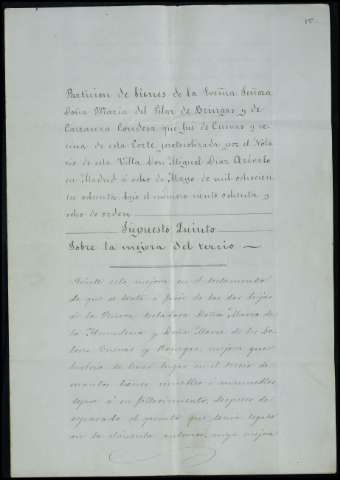 Particion de bienes de la Exma Señora
Doña Maria del Pilar de Burgos y de
Carranza Condesa que fué de Cuevas y ve-
cina de esta Corte protocolizada por el Nota
rio de esta Villa Don Miguel Diaz Arévalo
en Madrid á ocho de Mayo de mil ochocien
tos ochenta bajo el número ciento ochenta y
ocho de orden
Supuesto Quinto
Sobre la mejora del tercio
esta mejora en el testamento
de que se trata á favor de las dos hijas
de la Señora testadora Doña Maria de
la Almudena y Doña Maria de los Do
lores Cuevas y mejora que
habria de tener lugar en el tercio de
cuantos bienes muebles é inmuebles
dejase á su fallecimiento, despues de
separado el quinto que tenia legado
en la cláusula anterior, cuya mejora